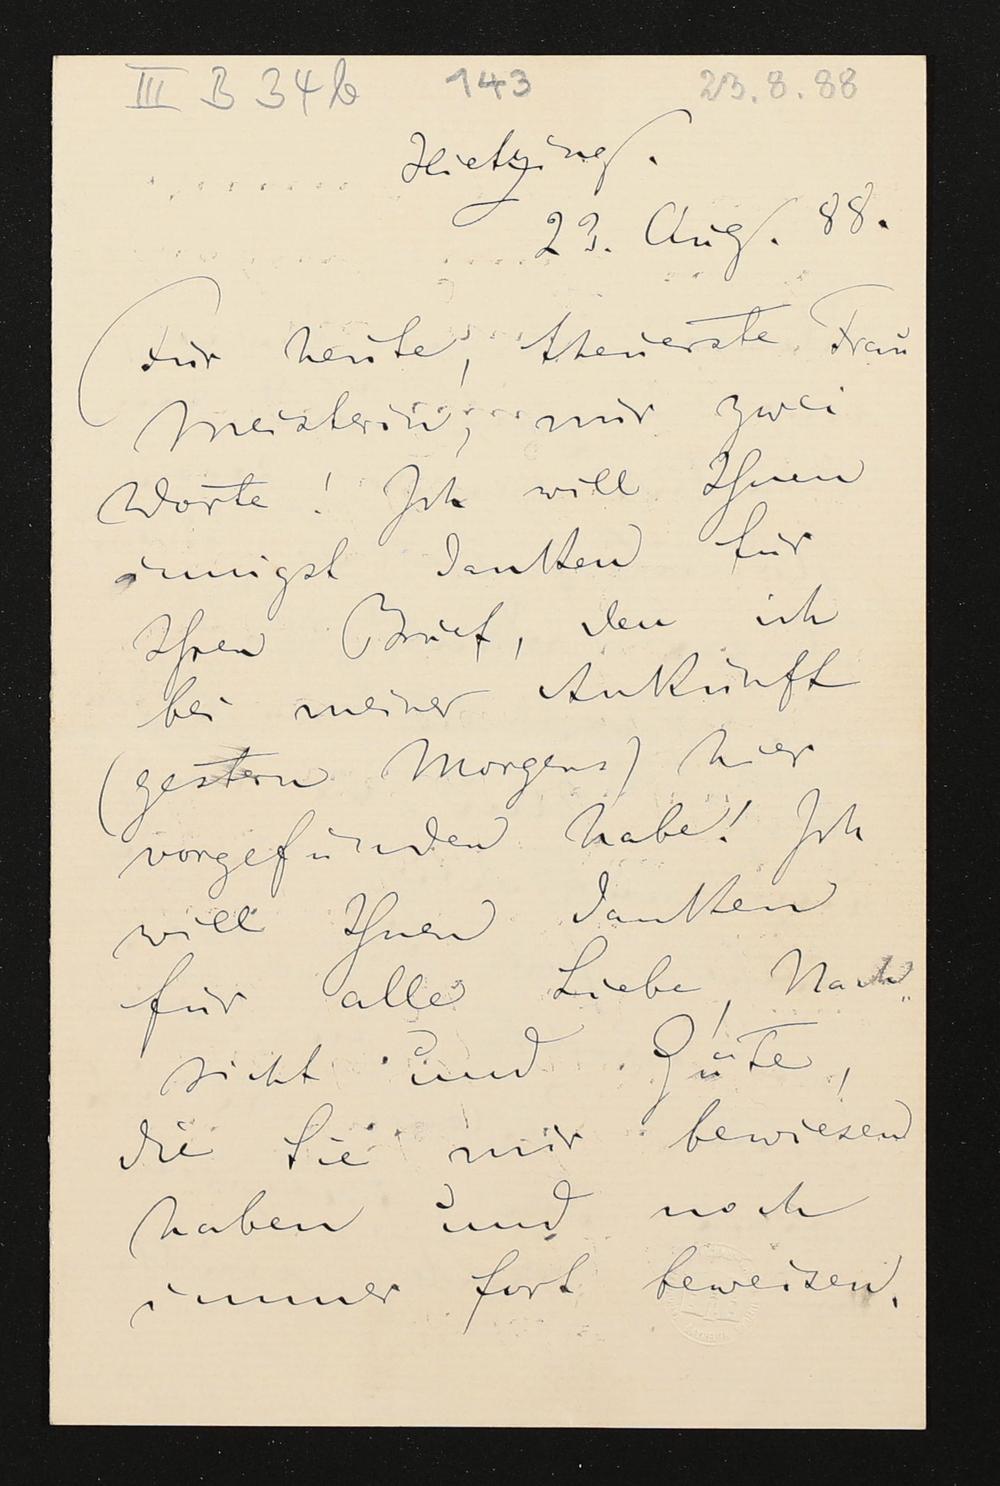 III B 34b 143 23.8.88
Hietzing.
23. Aug. 88.
Für heute, theuerste Frau
Meisterin, nur zwei
Worte! Ich will Ihnen
innigst danken für
Ihren Brief, den ich
bei meiner Ankunft
(gestern Morgens) hier
vorgefunden habe! Ich
will Ihnen danken
für alle Liebe, Nach-
sicht und Güte,
die Sie mir bewiesen
haben und noch
immer fort beweisen.